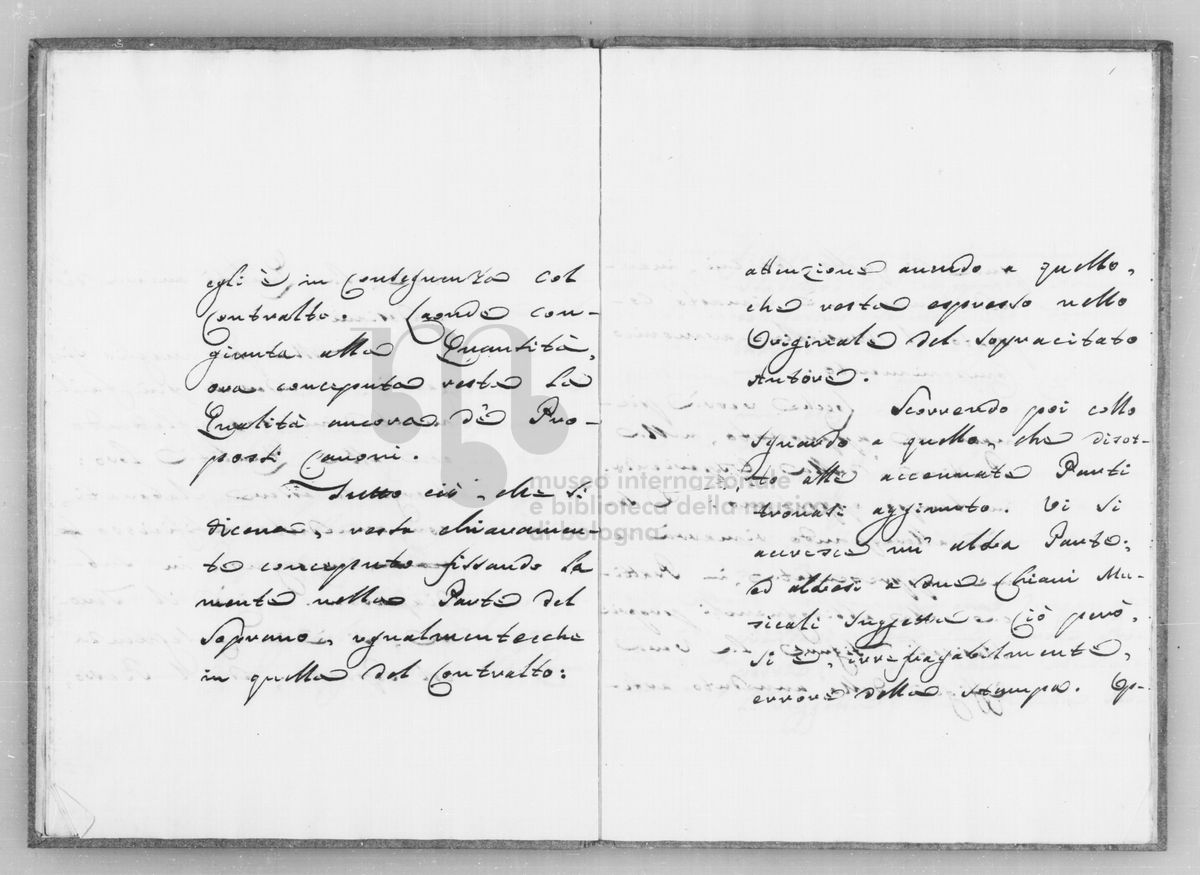 egli è in Conseguenza col
Contralto. Laonde con-
giunta alla Quantità,
ora conceputa resta la
Qualità ancora de' Pro-
posti Canoni.
Tutto ciò, che si
dicea, resta chiaramen-
te conceputo fissando la
mente nella Parte del
Soprano, ugualmentecche
in quella del Contralto:
attenzione avendo a quello,
che resta espresso nello
Originale del sopracitato
Autore.
Scorrendo poi collo
sguardo a quello, che disot-
to alle accennate Parti
trovasi aggiunto. Vi si
accresce un' altra Parte;
ed altresì a due Chiavi Mu-
sicali suggetta. Ciò però,
si è, irrefragabilmente,
errore della stampa. Op-
museo internazionale
e biblioteca della musica
di bologna